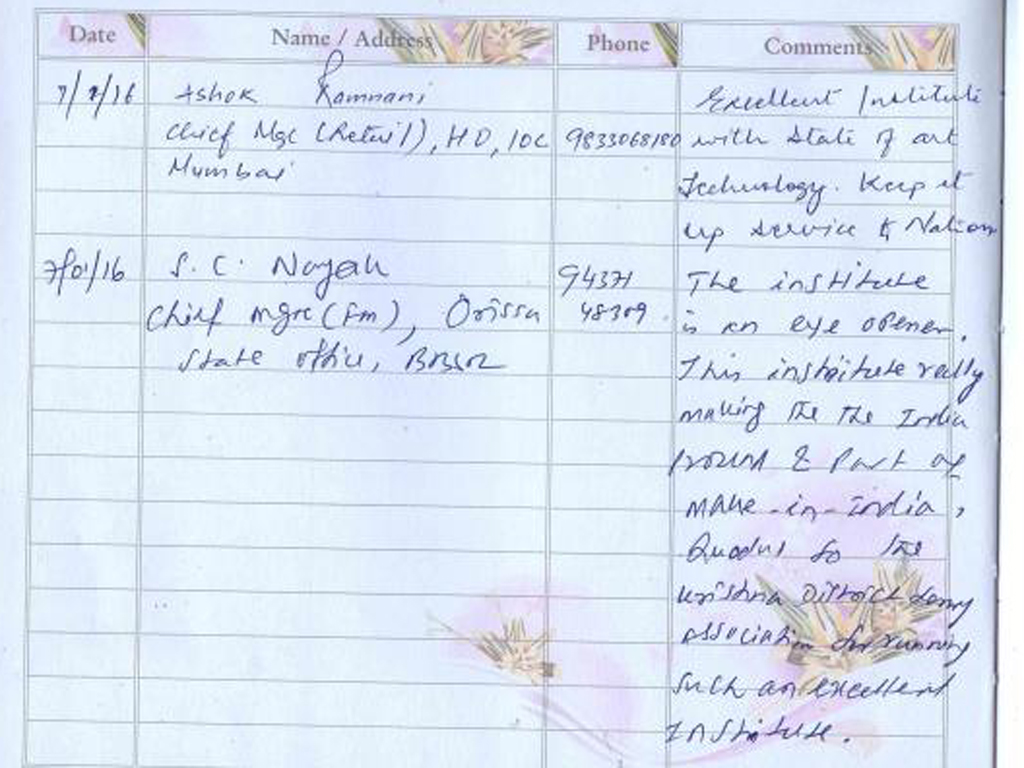 Date Name / Address Phone Comments
7/1/16 Ashok Ramnani Excellent Institute
Chief Mgr (Retail), HO, IOC 9833068180 with State of art
Mumbai Technology. Keep it
up service to Nation
7/01/16 S. C. Nayak 94371 The institute
Chief Mgr (Fm), Orissa 48309. is an eye opener.
State office, BBSR This institute really
making the the India
proud & Part of
make-in-India,
to the
Krishna District Lorry
Association for running
such an excellent
Institute.